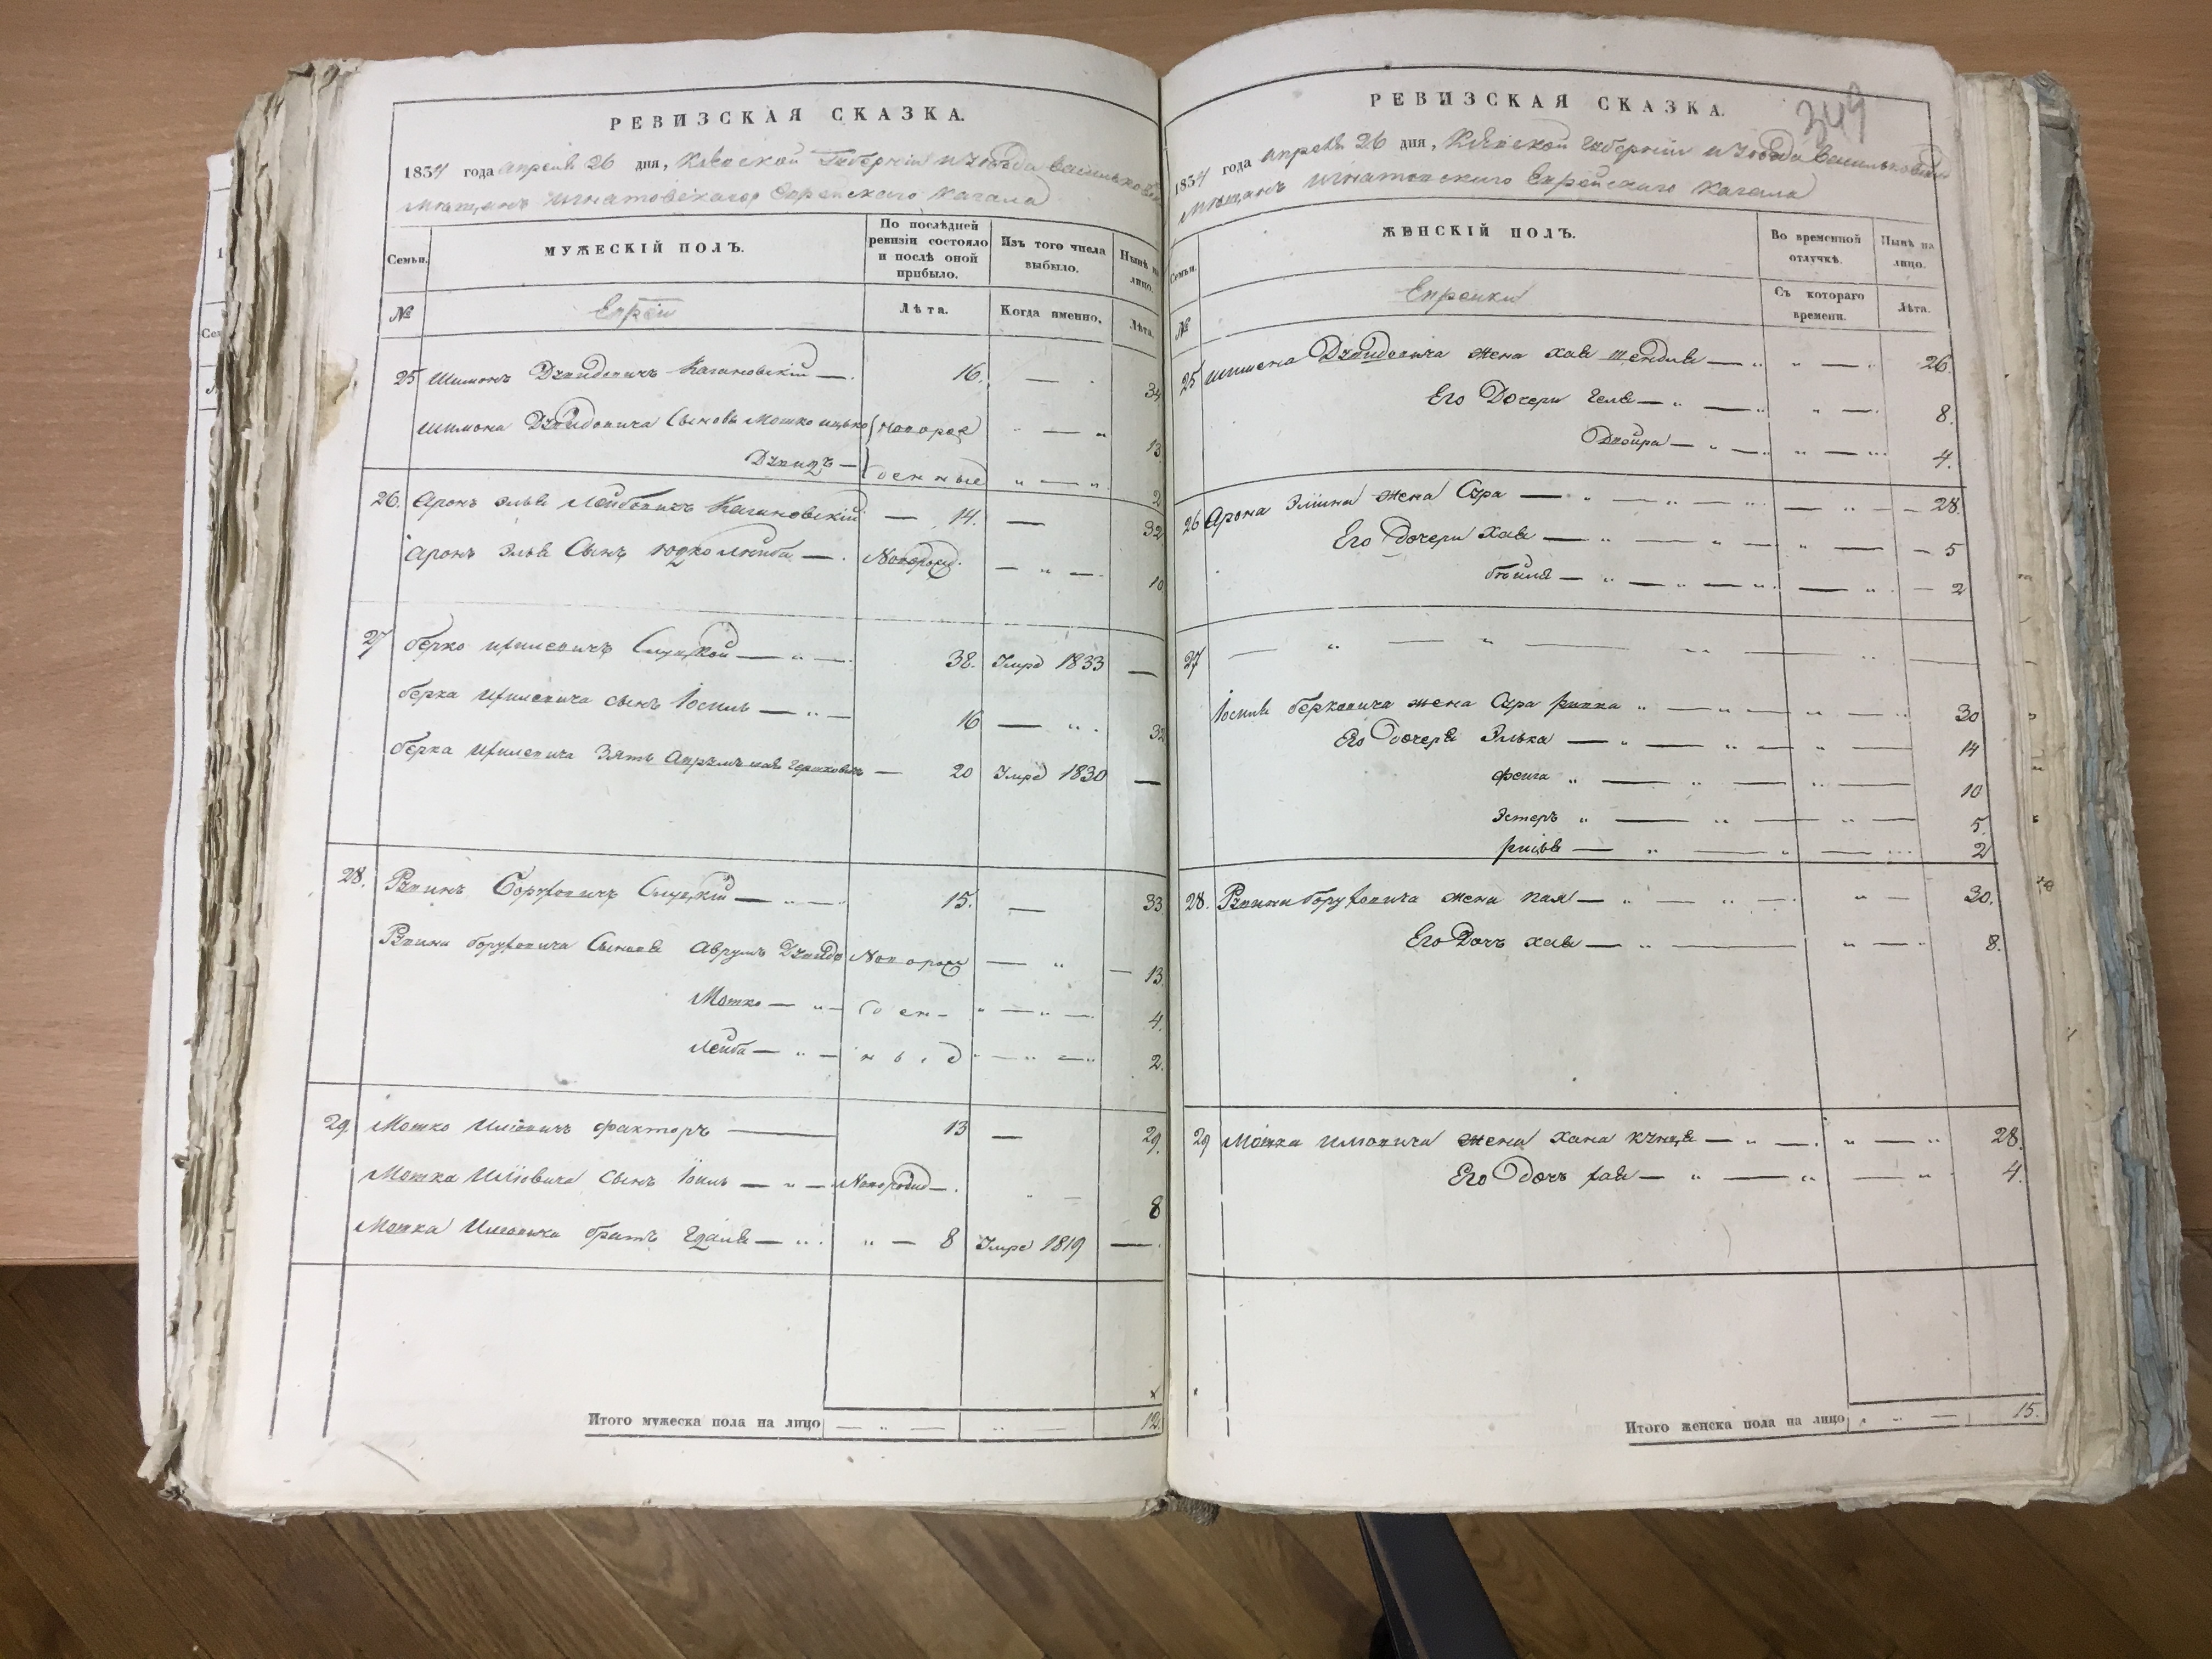 РЕВИЗСКАЯ СКАЗКА.
1834 года апреля 26 дня, Кіевской Губерніи и уезда Васильков
Мещанъ Игнатовскаго Еврейскаго Кагала
Семьи.
МУЖЕСКІЙ ПОЛЪ.
По послѣдней ревизіи состояло и послѣ оной прибыло.
Изъ того числа выбыло.
Нынѣ на лицо.
№
Евреи
Лѣта.
Когда именно.
Лѣта.
25 Шимонъ Дувидовичъ Кагановскій — 16. — 34
Шимона Дувидовича Сыновья Мошко ицько новорож — 13
Дувидъ — денные — 2
26. Аронъ Эльв Лейбовичъ Кагановскій — 14. — 32
Аронъ Эльв Сынъ Юдко лейба — Новорожд. — 10
27 Берко Ицилевичъ Слуцкой — 38. Умре 1833 —
Берка Ицилевича сынъ Іосиль — 16 — 32
Берка Ицилевича Зять Аврумъ Гершковичъ — 20 Умре 1830 —
28. Рувинъ Боруховичъ Слуцкій — 15. — 33
Рувина Боруховича Сыновя Аврумъ Дувидъ Новорож — 13
Мошко — ден — 4.
Лейба — ные — 2.
29. Мошко Иліовичъ факторъ — 13 — 29.
Мошка Иліовича сынъ Іоиль — Новорожд — 8
Мошка Иліовича братъ Гдаля — 8 Умре 1819 —
Итого мужеска пола на лицо — 12.
349
РЕВИЗСКАЯ СКАЗКА.
1834 года апреля 26 дня, Кіевской Губерніи и уезда Васильков
Мещанъ Игнатовскаго Еврейскаго Кагала
Семьи.
ЖЕНСКІЙ ПОЛЪ.
Во временной отлучкѣ.
Нынѣ на лицо.
№
Еврейки
Съ котораго времени.
Лѣта.
25 Шимона Дувидовича жена хая шендля — 26.
Его Дочери Геля — 8.
Двойра — 4.
26 Арона Эліина жена Сура — 28.
Его дочери Хая — 5
бейля — 2
27
Іосиля берковича жена Сура ривка — 30
Его дочеря Элька — 14
фейга — 10
Эстеръ — 5.
2
28. Рувина Боруховича жена пая — 30.
Его Дочь хая — 8.
29 Мошка иліовича жена хана — 28.
Его дочь хая — 4.
Итого женска пола на лицо — 15.